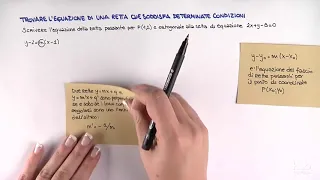 TROVARE L'EQUAZIONE DI UNA RETTA CHE SODDISFA DETERMINATE CONDIZIONI
Scrivere l'equazione della retta passante per P(1,2) e ortogonale alla retta di equazione 2x+y-8=0
y-2=m(x-1)
Due rette y=mx+q e
y=m'x+q' sono perpendicolari
se e solo se i loro
angolari sono uno
dell'altro:
m' = -1/m
y-y₀ = m(x-x₀)
è l'equazione del fascio
di rette passanti per
il punto di coordinate
P(x₀,y₀)